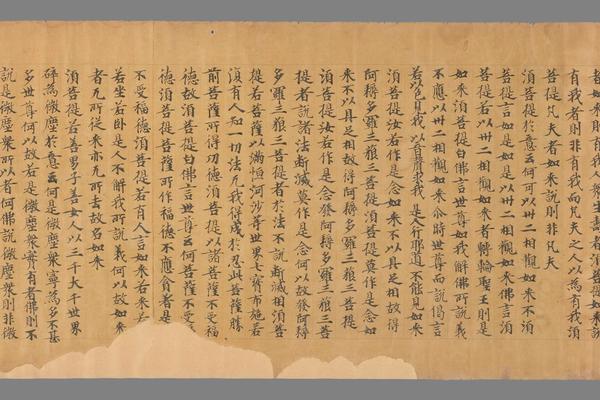 我人衆生壽者須菩提如來說
有我者則非有我而凡夫之人以為有我須
菩提凡夫者如來說則非凡夫
須菩提於意云何可以卅二相觀如來不須
菩提言如是如是以卅二相觀如來佛言須
菩提若以卅二相觀如來者轉輪聖王則是
如來須菩提白佛言世尊如我解佛所說義
不應以卅二相觀如來尒時世尊而說偈言
若以色見我 以音聲求我 是人行邪道 不能見如來
須菩提汝若作是念如來不以具足相故得
阿耨多羅三藐三菩提須菩提莫作是念如
來不以具足相故得阿耨多羅三藐三菩提
須菩提汝若作是念發阿耨多羅三藐三菩
提者說諸法斷滅莫作是念何以故發阿耨
多羅三藐三菩提者於法不說斷滅相須菩
提若菩薩以滿恒河沙等世界七寶布施若
復有人知一切法无我得成於忍此菩薩勝
前菩薩所得功德須菩提以諸菩薩不受福
德故須菩提白佛言世尊云何菩薩不受
德須菩提菩薩所作福德不應貪著是
不受福德須菩提若有人言如來若來若
若坐若卧是人不解我所說義何以故如來
者无所從來亦无所去故名如來
須菩提若善男子善女人以三千大千世界
碎為微塵於意云何是微塵衆寧為多不甚
多世尊何以故若是微塵衆實有者佛則不
說是微塵衆所以者何佛說微塵衆則非微